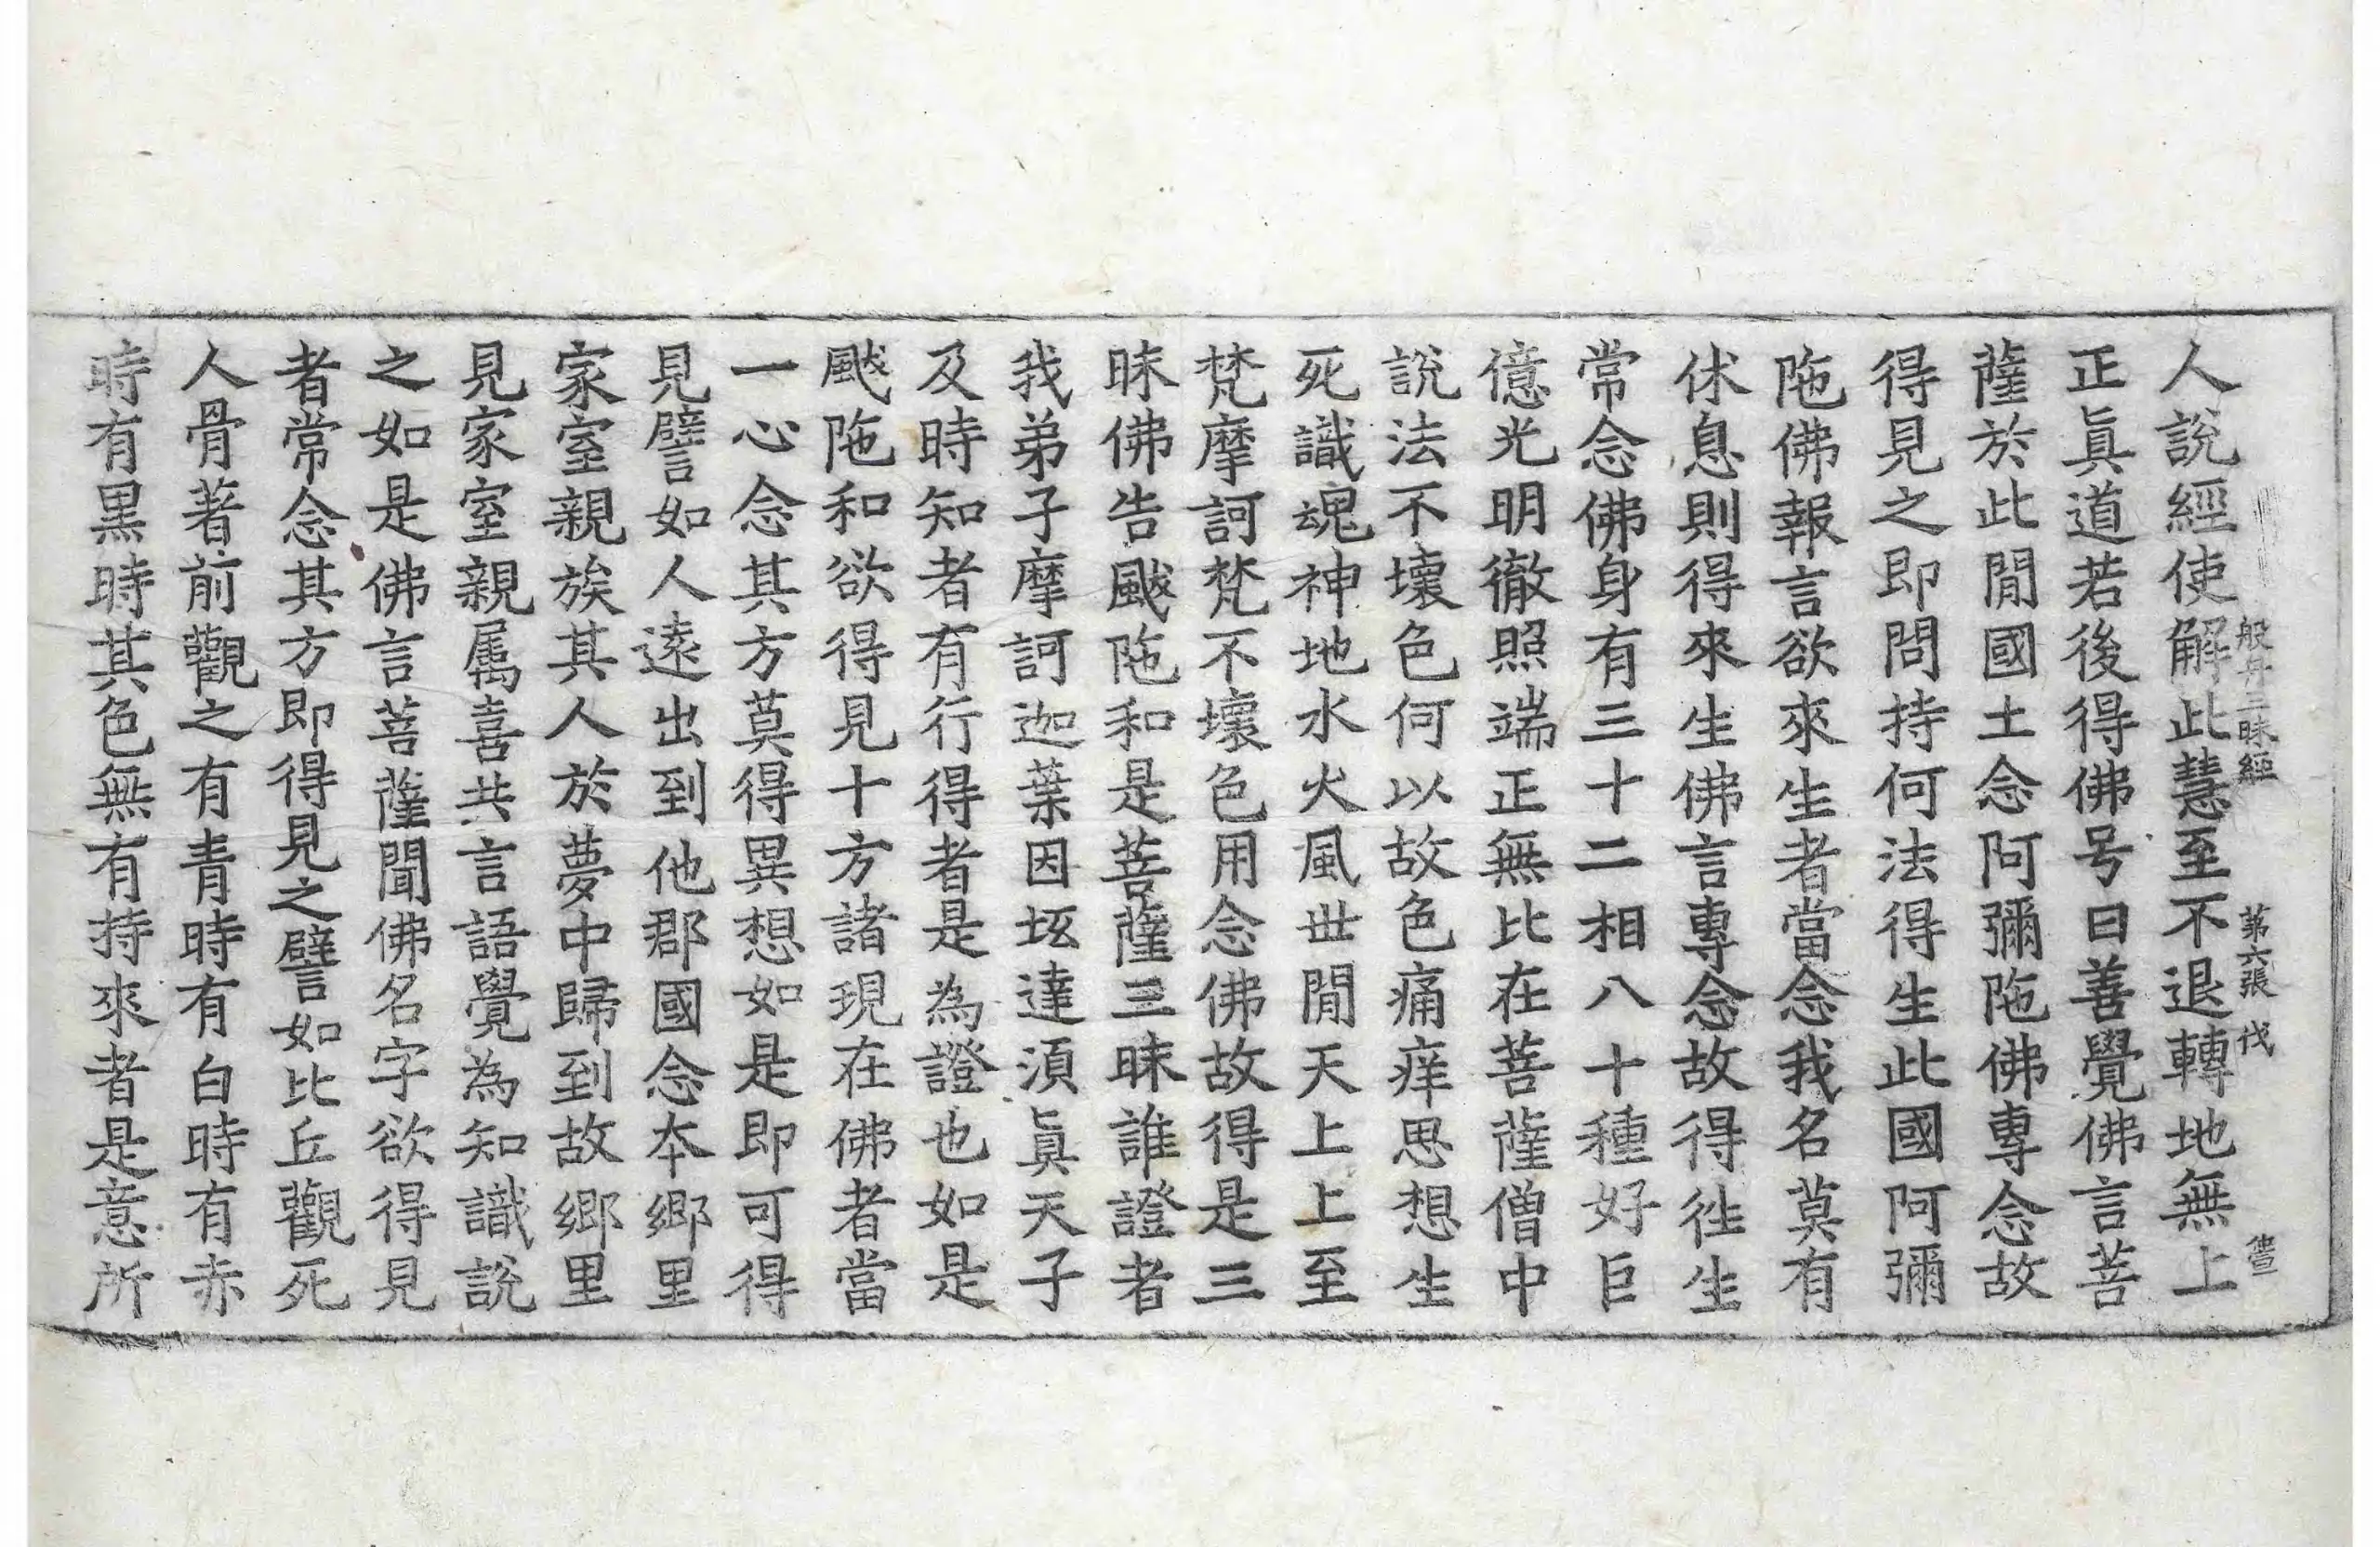 般舟三昧經 第六張 伐
人說經使解此慧至不退轉地無上
正眞道若後得佛号曰善覺佛言菩
薩於此閒國土念阿彌陁佛專念故
得見之即問持何法得生此國阿彌
陁佛報言欲來生者當念我名莫有
休息則得來生佛言專念故得往生
常念佛身有三十二相八十種好巨
億光明徹照端正無比在菩薩僧中
說法不壞色何以故色痛痒思想生
死識魂神地水火風世閒天上上至
梵摩訶梵不壞色用念佛故得是三
昧佛告颰陁和是菩薩三昧誰證者
我弟子摩訶迦葉因坻達湏眞天子
及時知者有行得者是為證也如是
颰陁和欲得見十方諸現在佛者當
一心念其方莫得異想如是即可得
見譬如人遠出到他郡國念本鄉里
家室親族其人於夢中歸到故鄉里
見家室親属喜共言語覺為知識說
之如是佛言菩薩聞佛名字欲得見
者常念其方即得見之譬如比丘觀死
人骨著前觀之有青時有白時有赤
時有黒時其色無有持來者是意所